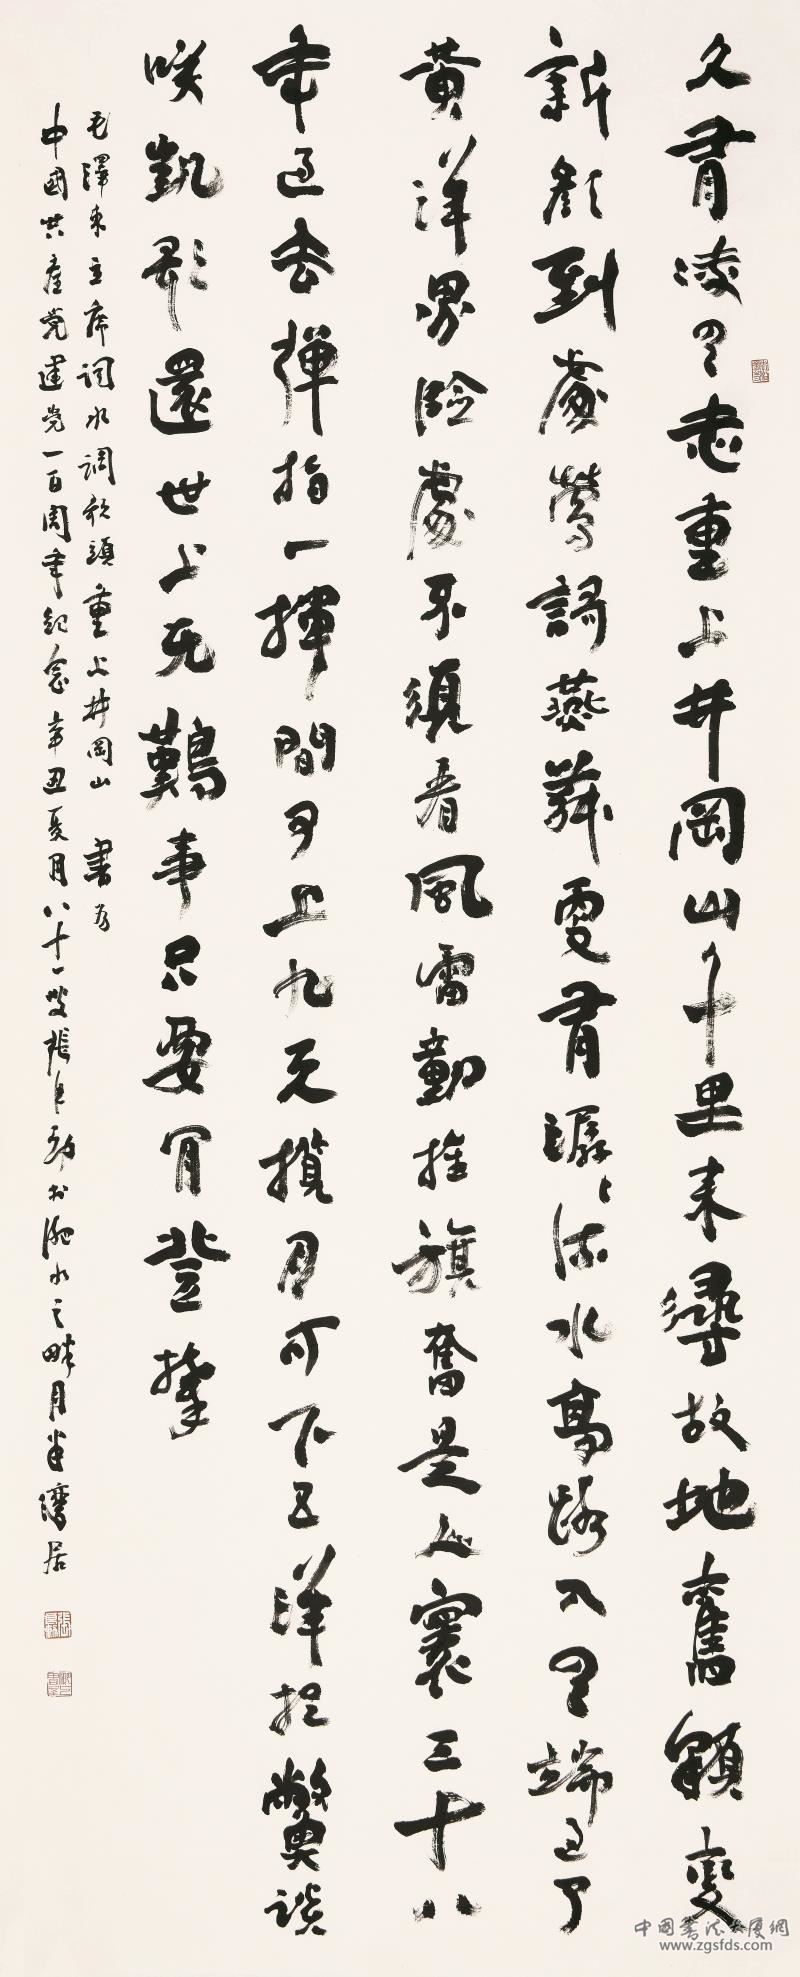 久有凌雲志重上井岡山千里来尋故地舊貌變
新顔到處鶯歌燕舞更有潺潺流水高路入雲端過了
黄洋界險處不須看風雷動旌旗奮是人寰三十八
年過去彈指一揮間可上九天攬月可下五洋捉鱉談
咲凱歌還世上无難事只要肯登攀
毛澤東主席詞水調歌頭重上井岡山 書為
中國共產党建党一百周年紀念辛丑夏月八十一叟張 於淝水之畔月半灣居
中國書法大厦網
www.zgsfds.com